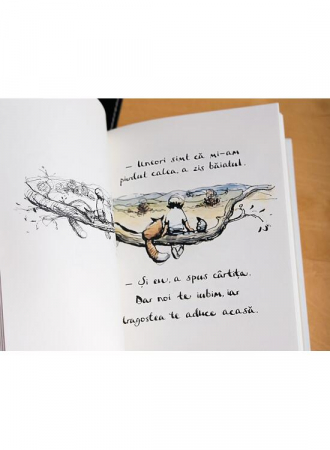 – Uneori simt că mi-am
pierdut calea, a zis băiatul.
– Și eu, a spus cârtița.
Dar noi te iubim, iar
dragostea te aduce acasă.